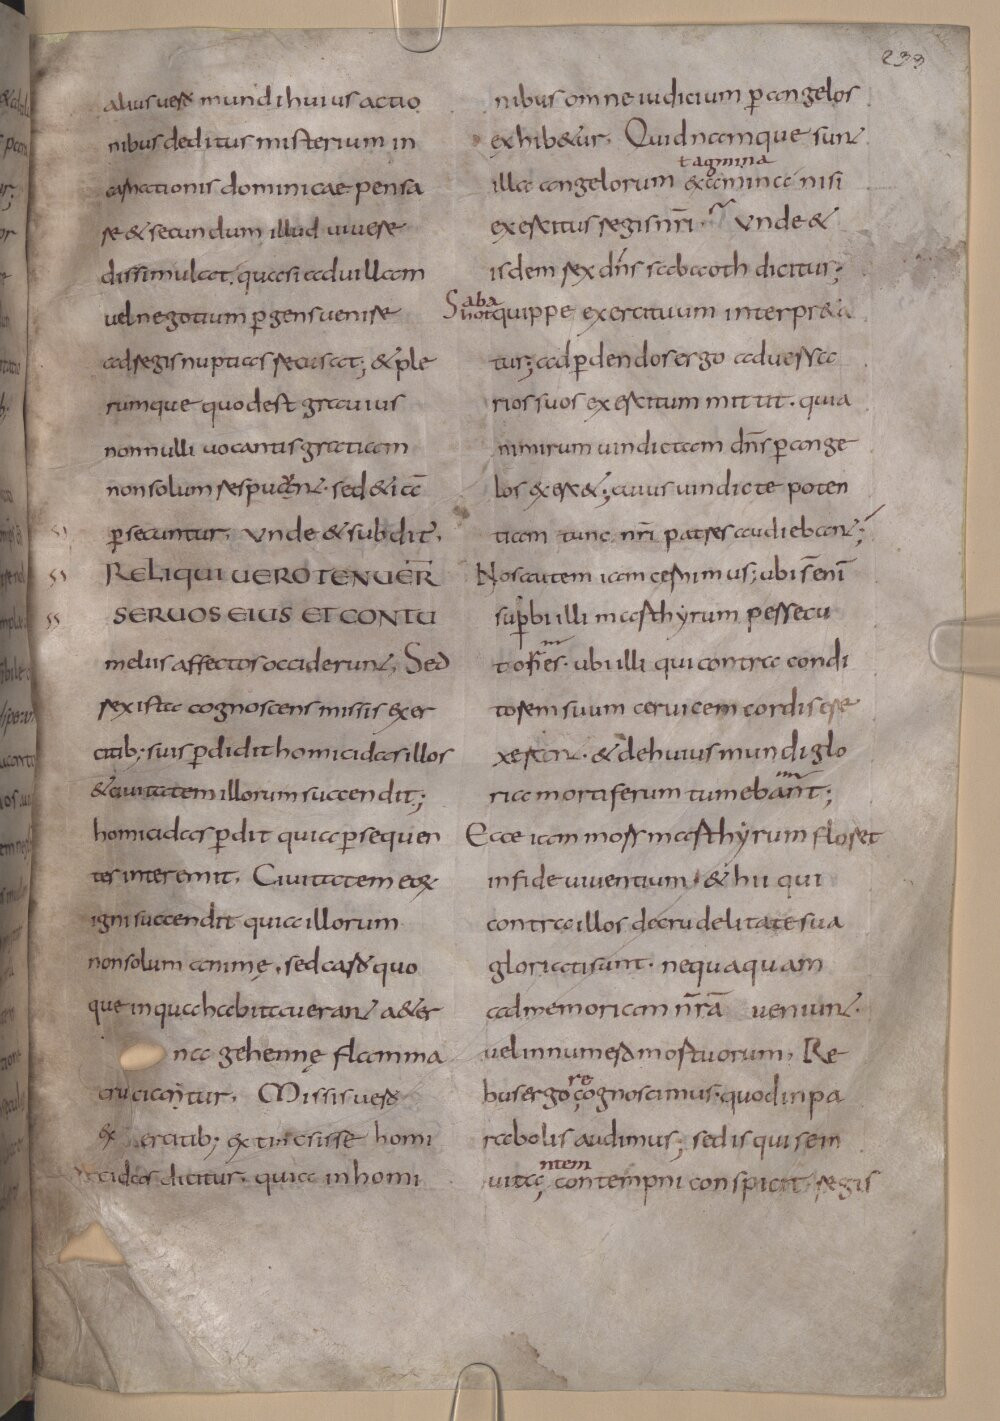 233
alius uero mundi huius actio
nibus deditus misterium in
carnationis dominicae pensa
re & secundum illud uiuere
dissimulat. quasi ad uillam
uel negotium pgens uenire
ad regis nuptias recusat; & ple
rumque quod est grauius
non nulli uocantis gratiam
non solum respuunt. sed & iā
persecuntur. Vnde & subdit.
RELIQUI UERO TENUER̄
SERUOS EIUS ET CONTU
melus affectos occiderunt. Sed
rex ista cognoscens missis exer
citib; suis pdidit homicidas illos
& ciuitatem illorum succendit;
homicidas pdit quia psequen
tes interemit. Ciuitatem eoꝝ
igni succendit quia illorum
non solum animę. sed caro quo
que in qua habitauerant a&er
na gehennę flamma
cruciantur. Missis uero
ex ercitib; extincsisse homi
cidas dicitur. quia in homi
nibus omne iudicium p angelos
exhib&ur. Quid namque sunt
tagmina
illa angelorum exāmina nisi
exercitus regis nr̄i. Vnde &
isdem rex dn̄s sabaoth dicitur;
Saba
uoth quippe exercituum interpr&a
tur; ad pdendos ergo aduersa
rios suos exercitum mittit. quia
nimirum uindictam dn̄s p ange
los exer&; cuius uindicte poten
tiam tunc nr̄i patres audiebant;
Nos autem iam cernimus; ubi s̄ enī
supbi illi marthyrum persecu
tores. ubi illi qui contra condi
torem suum ceruicem cordis ere
xerant. & de huius mundi glo
ria mortiferum tumebant;
Ecce iam mors marthyrum floret
in fide uiuentium. & hii qui
contra illos de crudelitate sua
gloriati sunt. nequaquam
ad memoriam nr̄ā ueniunt.
uel in numero mortuorum. Re
re
bus ergo cognoscimus. quod in pa
rabolis audimus; sed is qui sein
ntem
uita contempni conspicit. regis